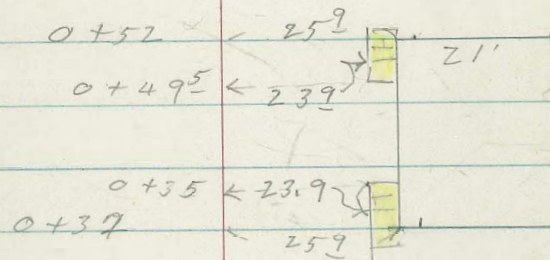 0+52 ← 25⁹ 21'
0+49⁵ ← 23⁹
0+35 ← 23.9
← 25⁹